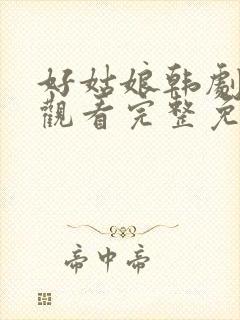 好姑娘韩劇
觀看完整免
帝中帝